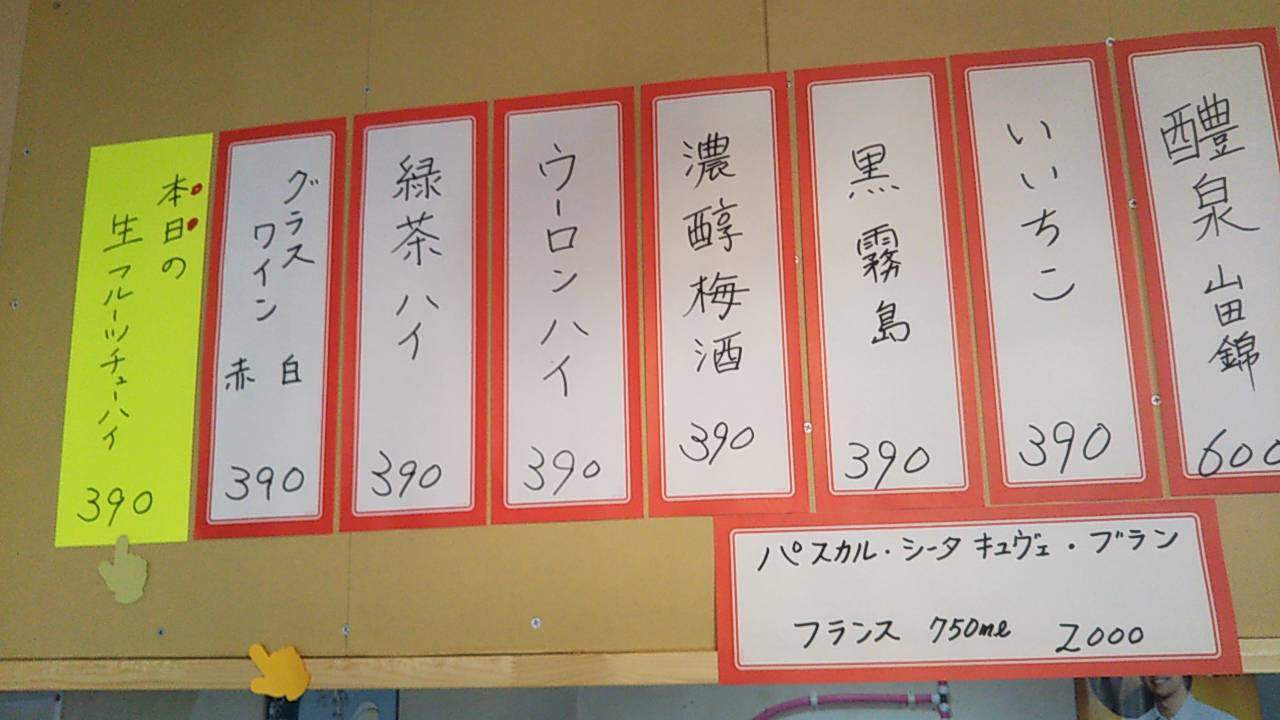 醴泉 山田錦
600
いいちこ
390
黒霧島
390
濃醇梅酒
390
ウーロンハイ
390
緑茶ハイ
390
グラス
ワイン
白
赤
390
本日の
生フルーツチューハイ
390
パスカル・シータ キュヴェ・ブラン
フランス 750ml 2000